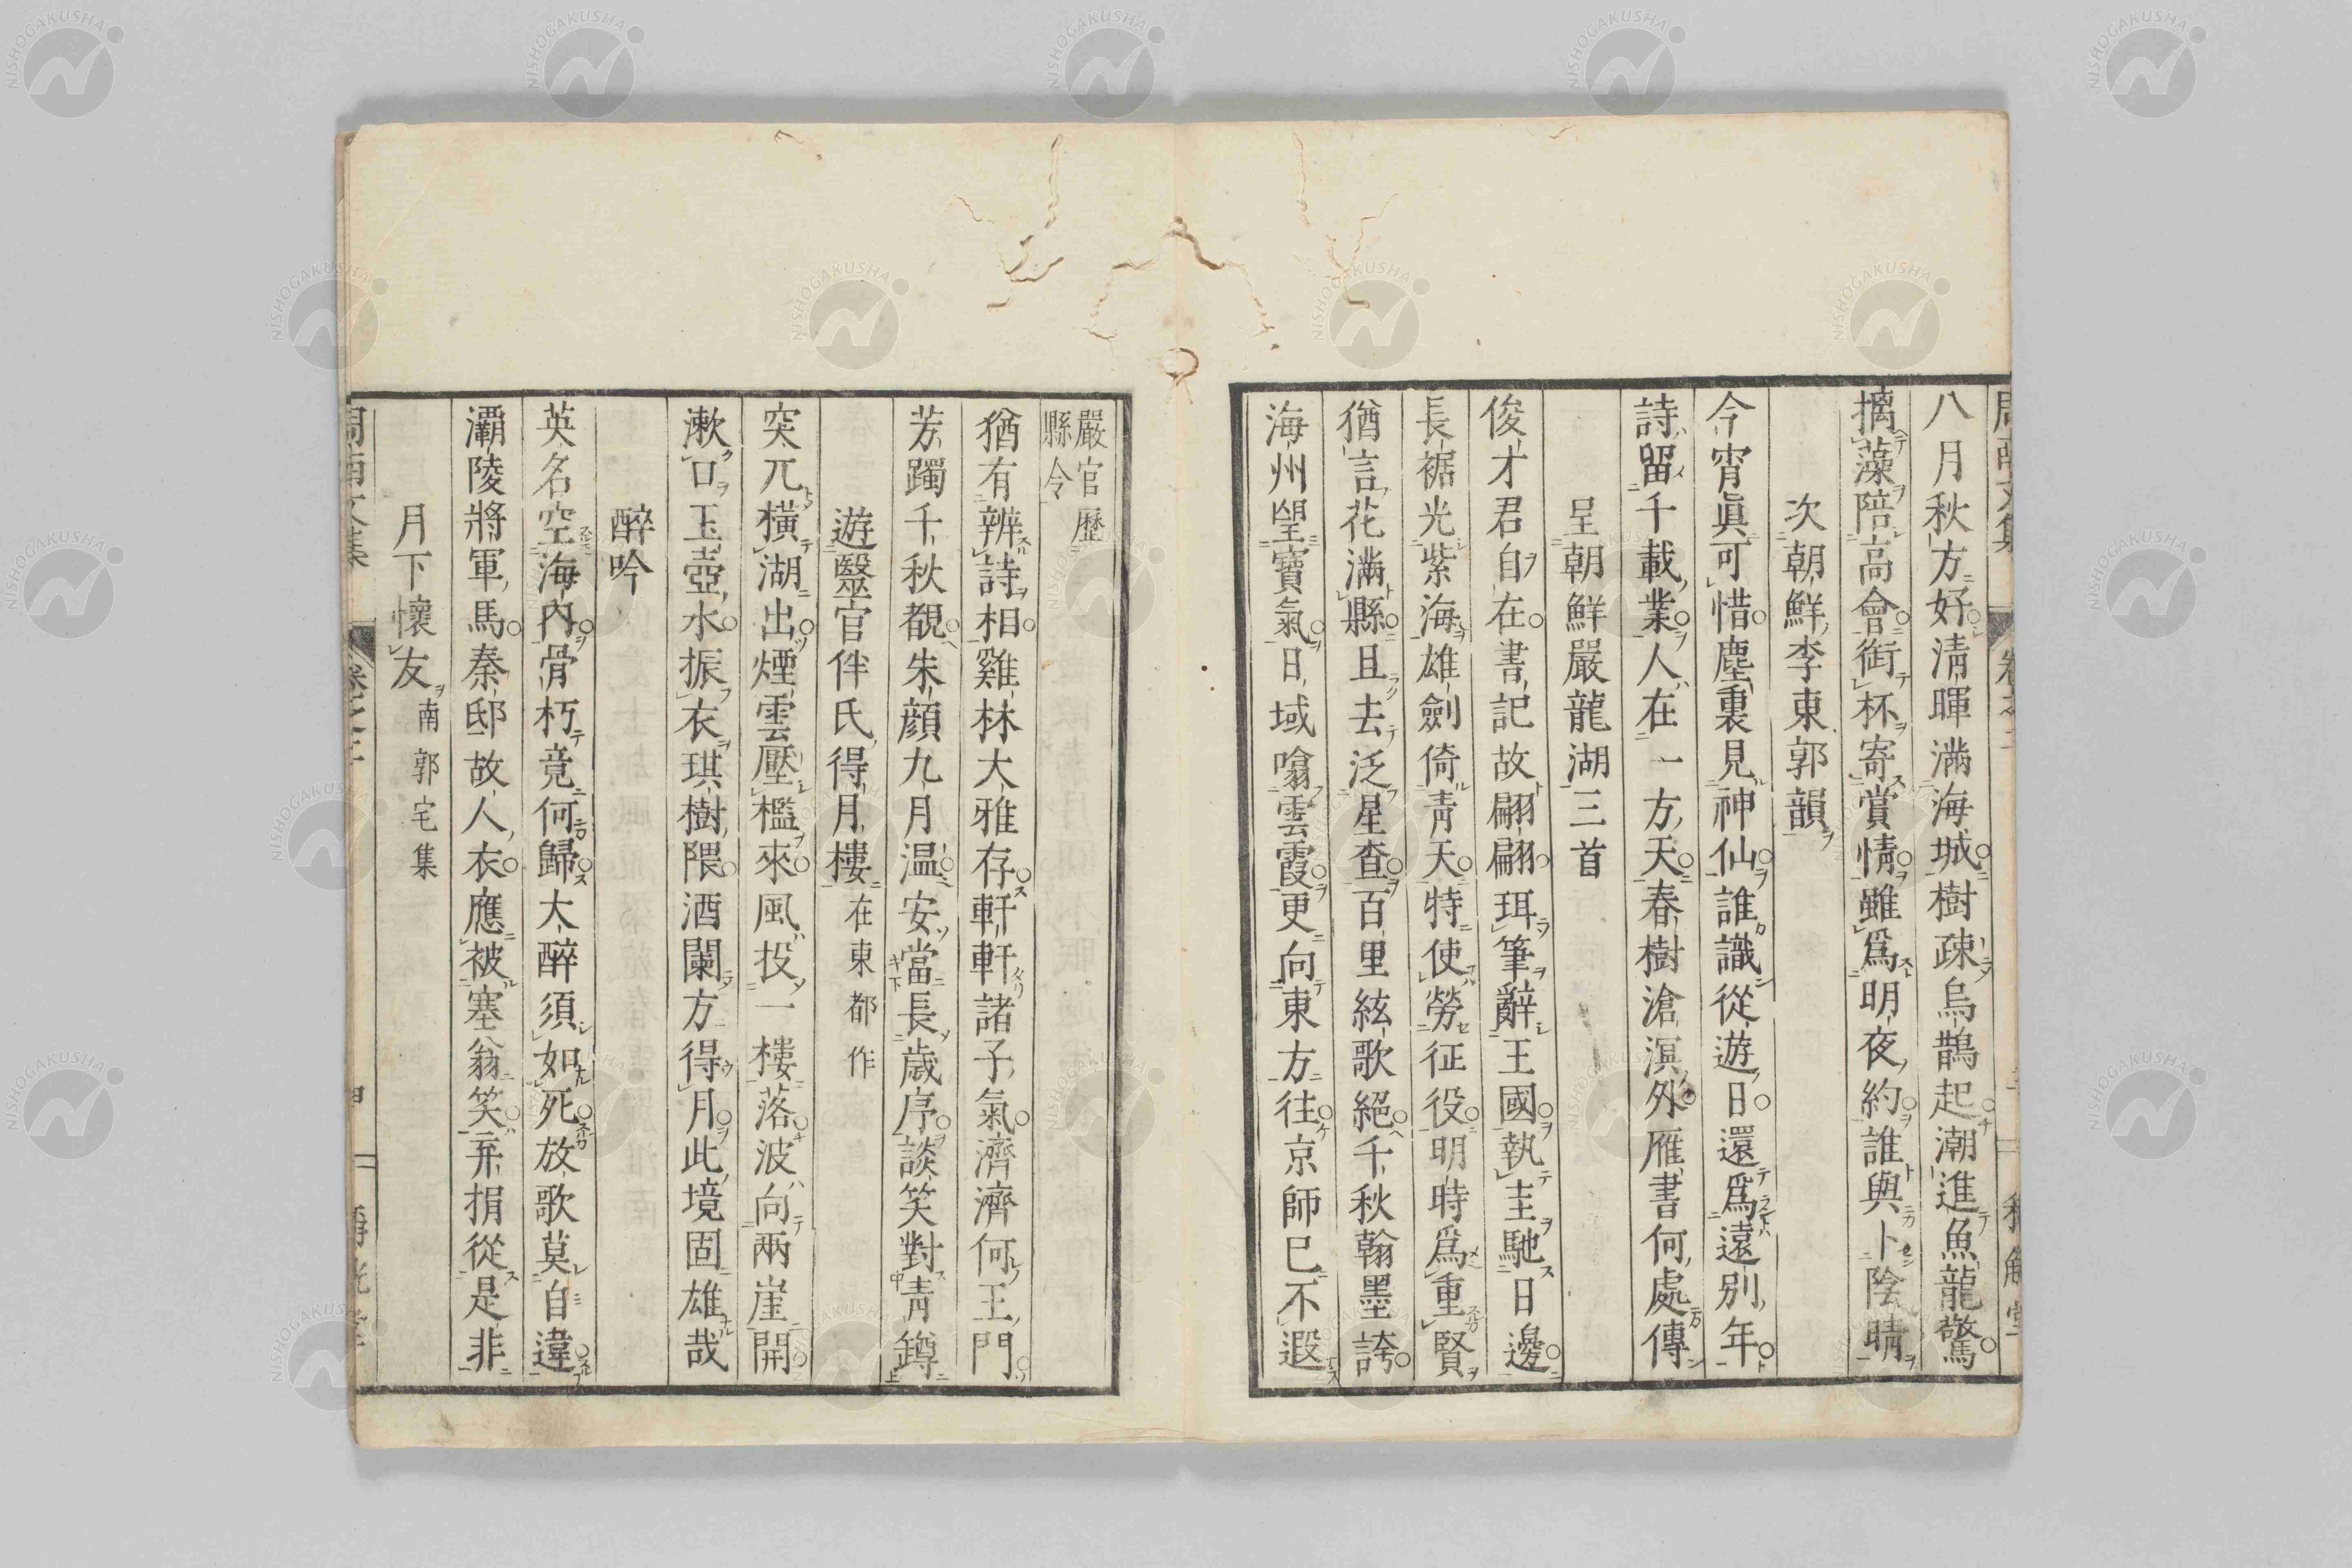 八月秋方好清暉滿海城樹疎烏鵲起潮進魚龍驚
摛藻陪高會銜杯寄賞情雖爲明夜約誰與卜陰晴
次朝鮮李東郭韻
今宵眞可惜塵裏見神仙誰識從遊日還爲遠別年
詩留千載業人在一方天春樹滄溟外雁書何處傳
呈朝鮮嚴龍湖三首
俊才君自在書記故翩翩珥筆辭王國執圭馳日邊
長裾光紫海雄劍倚青天特使勞征役明時爲重賢
猶言花滿縣且去泛星查百里絃歌絕千秋翰墨誇
海州望寶氣日域噏雲霞更向東方往京師已不遐
嚴官歷
縣令
猶有辨詩相雞林大雅存軒軒諸子氣濟濟何王門
芳躅千秋覩朱顔九月温安當長歲序談笑對青罇
遊毉官伴氏得月樓 在東都作
突兀橫湖出煙雲壓檻來風投一樓落波向兩崖開
漱口玉壺水振衣琪樹隈酒闌方得月此境固雄哉
醉吟
英名空海內骨朽竟何歸大醉須如死放歌莫自違
灞陵將軍馬秦邸故人衣應被塞翁笑弃捐從是非
月下懷友 南郭宅集
周南文集 卷之二 四
NISHOGAKUSHA